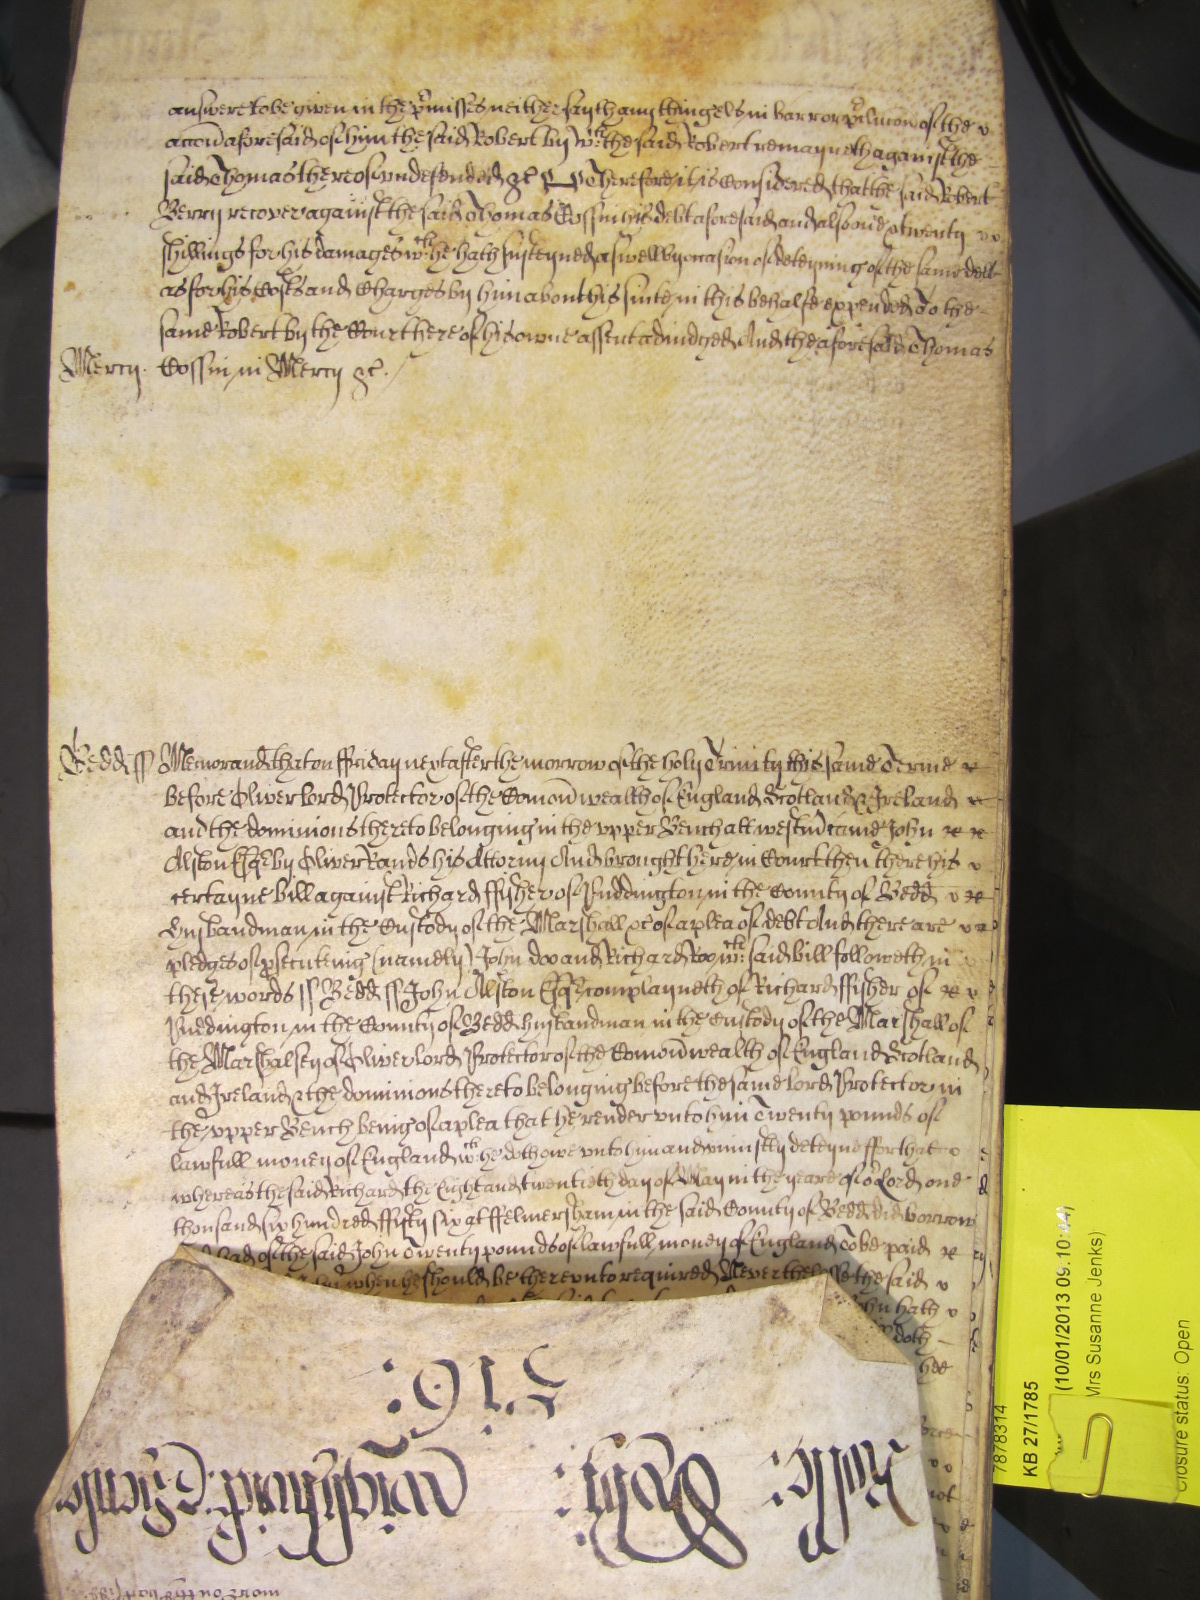 answere to be given in the p'misses neither sayth any thinge els in barr or p'clusion of the
accon aforesaid of him the said Robert by wch the said Robert remayneth against the
said Thomas thereof undefended &c Therefore it is Considered that the said Robert
Berry recover against the said Thomas Cossin his debt aforesaid and also twenty
shillings for his damages wch he hath susteyned aswell by occasion of deteyning of the same debt
as for his Costs and Charges by him about his suite in this behalfe expended To the
same Robert by the Court here of his owne assent adiudged And the aforesaid Thomas
Mercy. Cossin in Mercy &c./
Bedd ss Memorand that on ffriday next after the morrow of the holy Trinity this same Terme
before Oliver lord Protector of the Comon wealth of England Scotland & Ireland
and the dominions thereto belonging in the upper Bench att westm came John
Alston Esqr by Oliver Rands his Attorny And brought here in Court then there his
certayne bill against Richard ffisher of Puddington in the County of Bedd
husbandman in the Custody of the Marshall &c of a plea of debt And there are
pledges of p'secuting (namely) John doo and Richard Roo wch said bill followeth in
these words ss Bedd ss John Alston Esqr complayneth of Richard ffisher of
Puddington in the County of Bedd husbandman in the Custody of the Marshall of
the Marshalsey of Oliver lord Protector of the Comon wealth of England Scotland
and Ireland & the dominions thereto belonging before the same lord Protector in
the upper Bench being of a plea that he render unto him Twenty pounds of
lawfull money of England wch he doth owe unto him and uniustly deteyne ffor that
whereas the said Richard the Eight and twentieth day of May in the yeare of or Lord one
thousand six hundred ffifty six at ffelmersham in the said County of Bedd did borrow
had of the said John Twenty pounds of lawfull money of England To be paid
when he should be thereunto required Neverthelesse the said
John hath
doth
hee
516
Rosse
7878314
KB 27/1785
(10/01/2013 09:10:44)
Mrs Susanne Jenks)
Closure status: Open